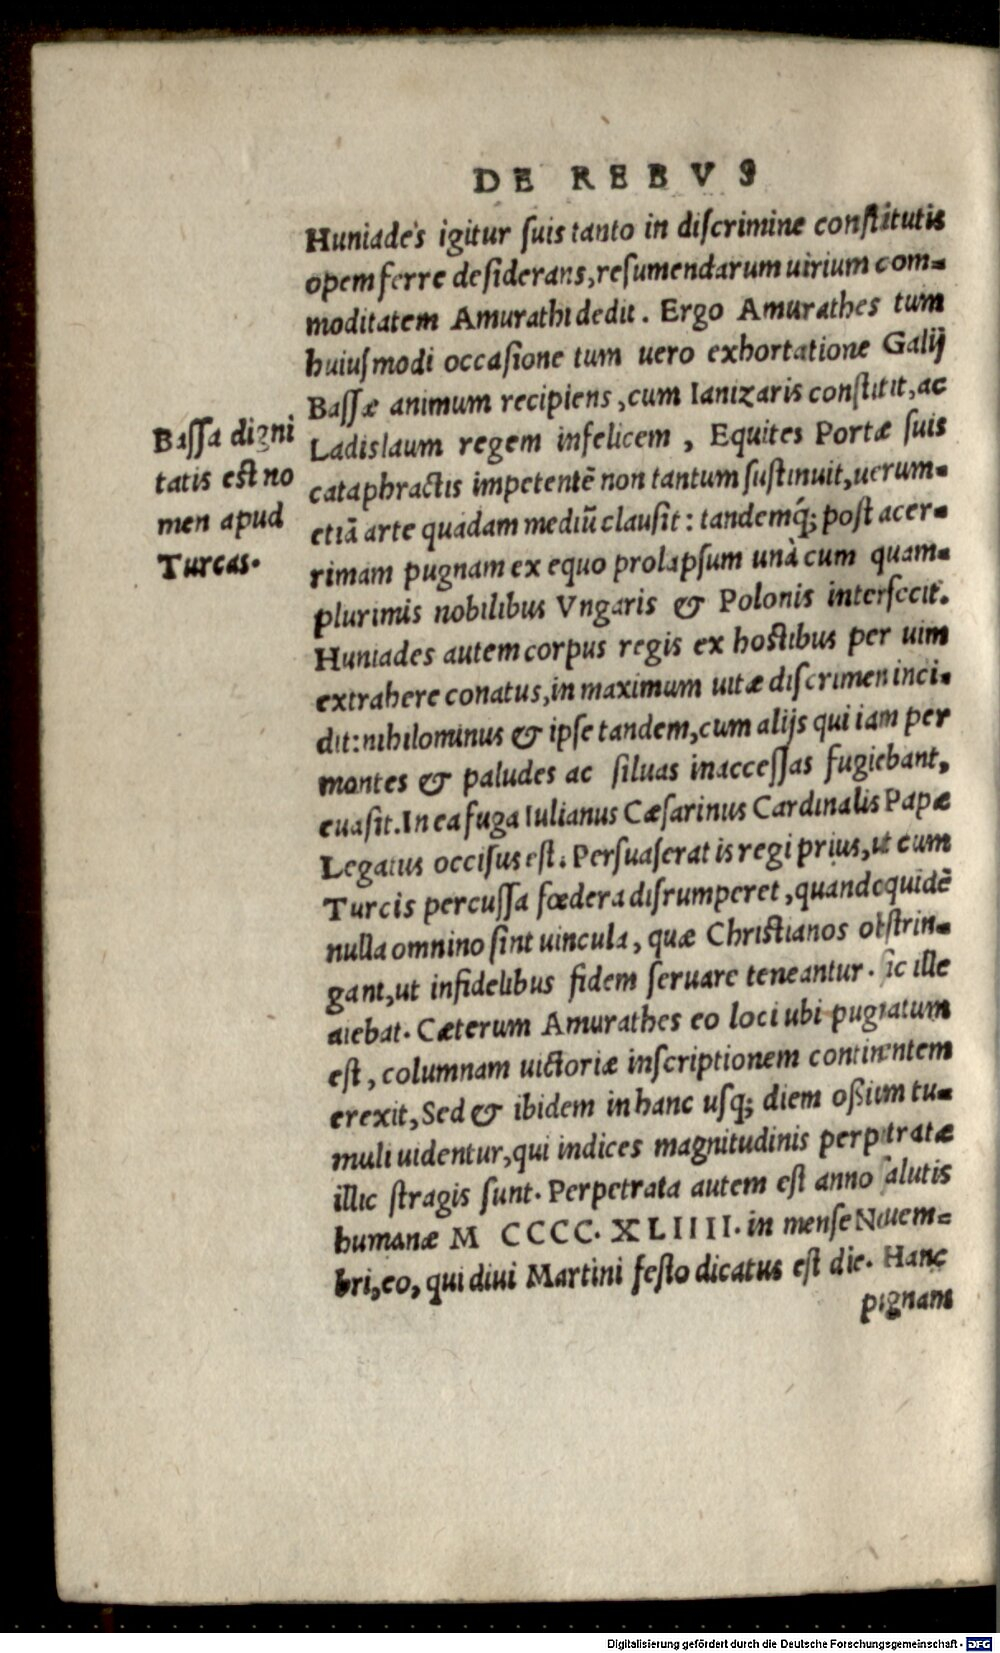 DE REBVS
Huniades igitur ſuis tanto in diſcrimine conſtitutis
opem ferre deſiderans, reſumendarum uirium com-
moditatem Amurathi dedit. Ergo Amurathes tum
huiuſmodi occaſione tum uero exhortatione Galij
Baſſæ animum recipiens, cum Ianizaris conſtitit, ac
Ladislaum regem infelicem, Equites Portæ ſuis
cataphractis impetentē non tantum ſuſtinuit, uerum-
etiā arte quadam mediū clauſit: tandemq́; poſt acer-
rimam pugnam ex equo prolapſum unà cum quam-
plurimis nobilibus Vngaris & Polonis interfecit.
Huniades autem corpus regis ex hoſtibus per uim
extrahere conatus, in maximum uitæ diſcrimen inci-
dit: nihilominus & ipſe tandem, cum alijs qui iam per
montes & paludes ac ſiluas inacceſſas fugiebant,
euaſit. In ea fuga Iulianus Cæſarinus Cardinalis Papæ
Legatus occiſus eſt. Perſuaſerat is regi prius, ut cum
Turcis percuſſa fœdera diſrumperet, quandoquidē
nulla omnino ſint uincula, quæ Chriſtianos obſtrin-
gant, ut infidelibus fidem ſeruare teneantur. ſic ille
aiebat. Cæterum Amurathes eo loci ubi pugnatum
eſt, columnam uictoriæ inſcriptionem continentem
erexit, Sed & ibidem in hanc uſq; diem oßium tu-
muli uidentur, qui indices magnitudinis perpetratæ
illic ſtragis ſunt. Perpetrata autem eſt anno ſalutis
humanæ M CCCC. XLIIII. in menſe Nouem-
bri, eo, qui diui Martini feſto dicatus eſt die. Hanc
pugnam
Baſſa digni
tatis eſt no
men apud
Turcas.
Digitalisierung gefördert durch die Deutsche Forschungsgemeinschaft - DFG